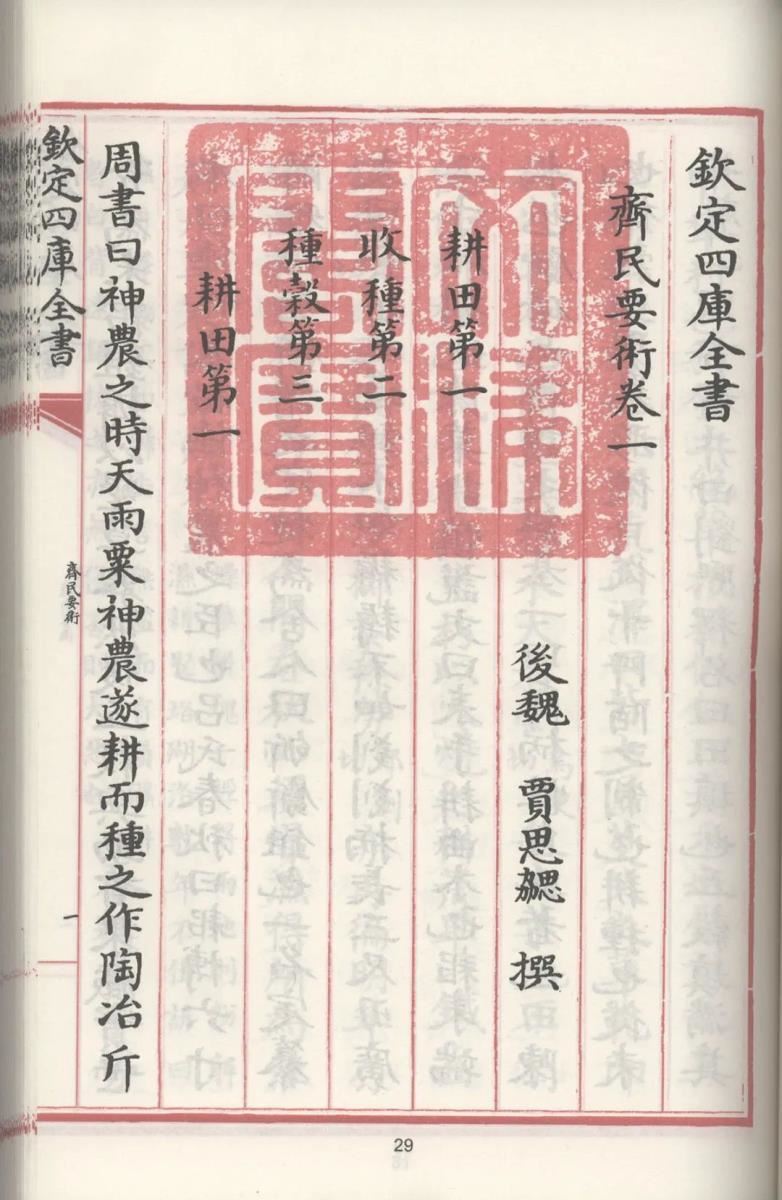 欽定四庫全書
齊民要術卷一
後魏 賈思勰 撰
耕田第一
收種第二
種穀第三
耕田第一
周書曰神農之時天雨粟神農遂耕而種之作陶冶斤
欽定四庫全書
齊民要術
一
文津
閣寶
29